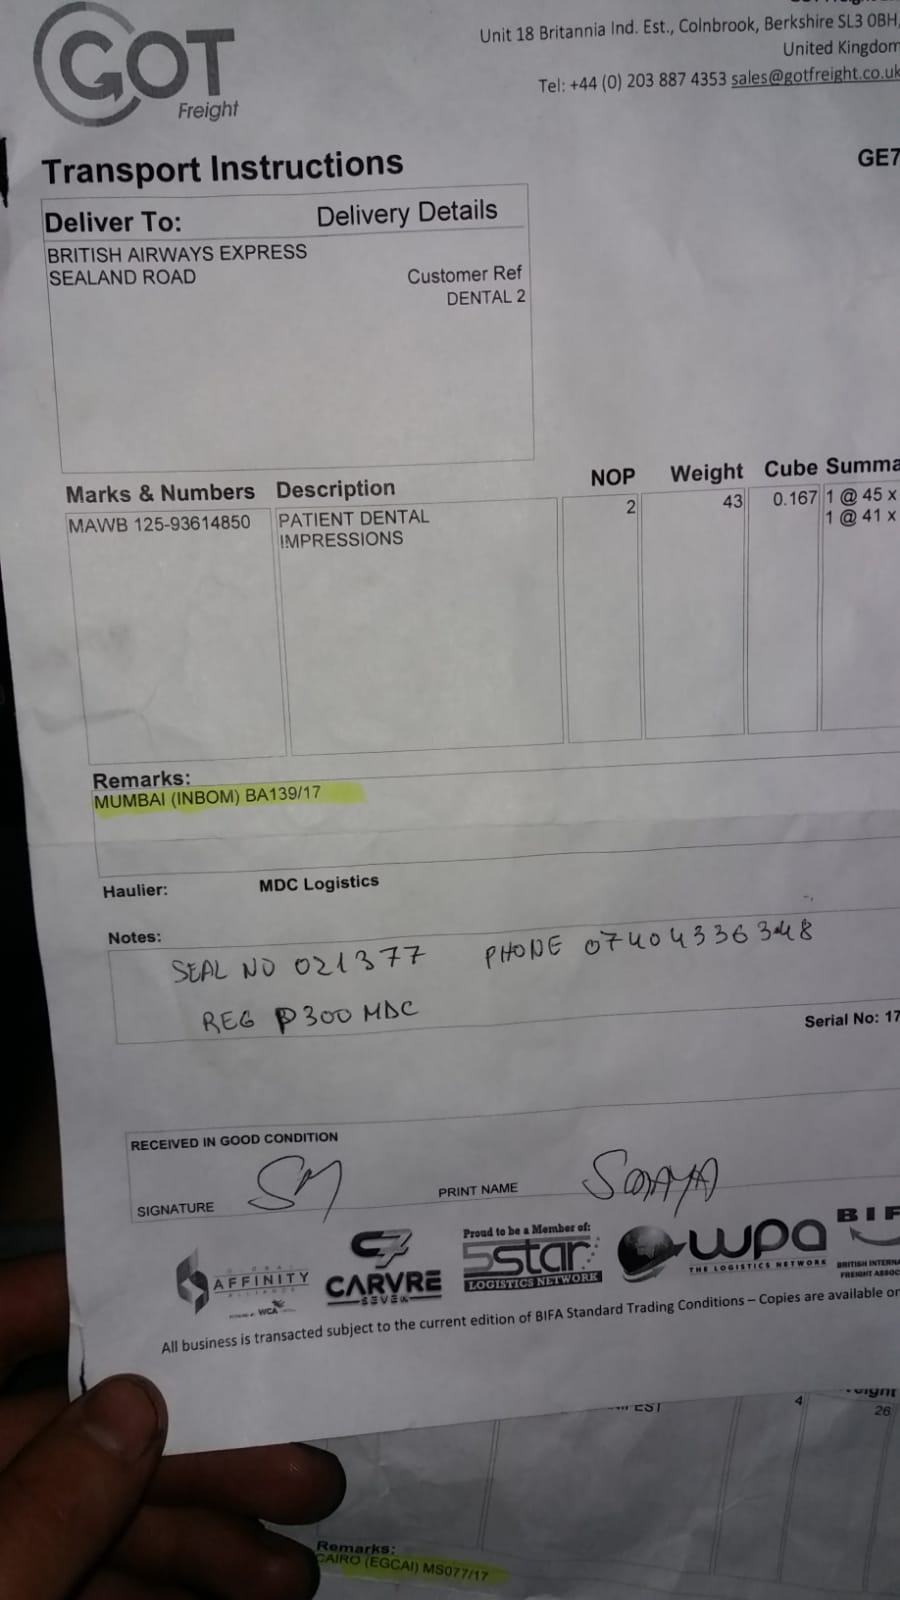 GOT
Freight
Unit 18 Britannia Ind. Est., Colnbrook, Berkshire SL3 0BH,
United Kingdom
Tel: +44 (0) 203 887 4353 sales@gotfreight.co.uk
Transport Instructions
GE7
Deliver To: Delivery Details
BRITISH AIRWAYS EXPRESS
SEALAND ROAD
Customer Ref
DENTAL 2
Marks & Numbers Description NOP Weight Cube Summa
MAWB 125-93614850 PATIENT DENTAL 2 43 0.167 1 @ 45 x
IMPRESSIONS 1 @ 41 x
Remarks:
MUMBAI (INBOM) BA139/17
Haulier: MDC Logistics
Notes:
SEAL NO 021377 PHONE 07404336348
REG P300 MDC
Serial No: 17
RECEIVED IN GOOD CONDITION
SIGNATURE SM PRINT NAME
AFFINITY
WCA
CARVRE
SEVEN
Proud to be a Member of:
5star
LOGISTICS NETWORK
wpa
THE LOGISTICS NETWORK
BIF
BRITISH INTERN
FREIGHT ASSOC
All business is transacted subject to the current edition of BIFA Standard Trading Conditions – Copies are available on
4 26
Remarks:
CAIRO (EGCAI) MS077/17